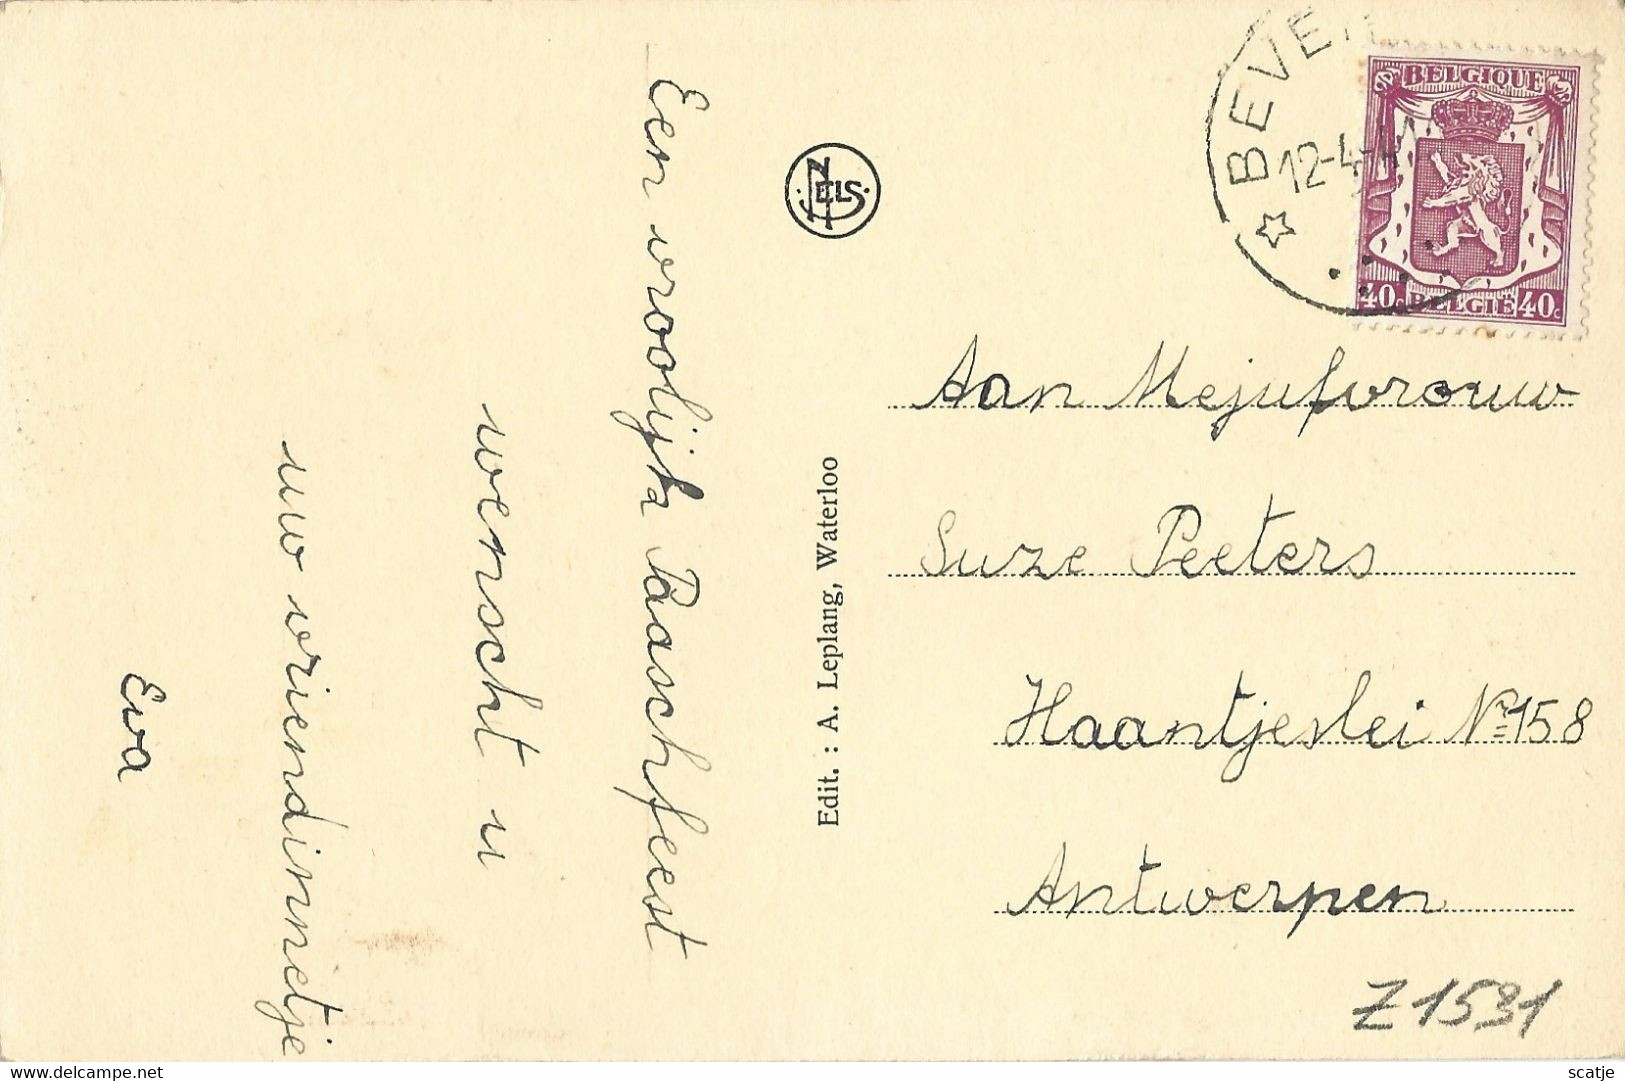 Een vroolijk Paaschfeest
wenscht u
uw vriendinnetje
Eva
NELS
Edit. : A. Leplang, Waterloo
BEVE
12-4-4
BELGIQUE
40c BELGIE 40c
Aan Mejufvrouw
Suze Peeters
Haantjeslei Nr 158
Antwerpen
Z1531
delcampe.net
scatje